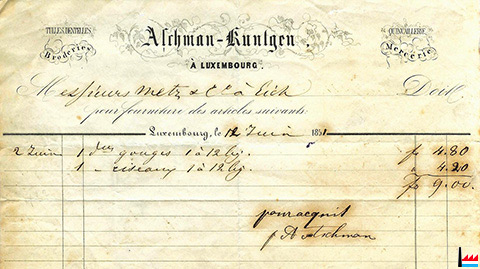 TULLES, DENTELLES, Broderies
Aschman-Kuntgen
QUINCAILLERIE Mercerie
À LUXEMBOURG.
Messieurs Metz & Cie à Eich Doit
pour fourniture des articles suivants
Luxembourg, le 12 Juin 1851
2 Juin 1 dne gouges 1 à 12 lig. f 4.80
1 - ciseaux 1 à 12 lig. " 4.20
f 9.00.
pour acquit
A Aschman